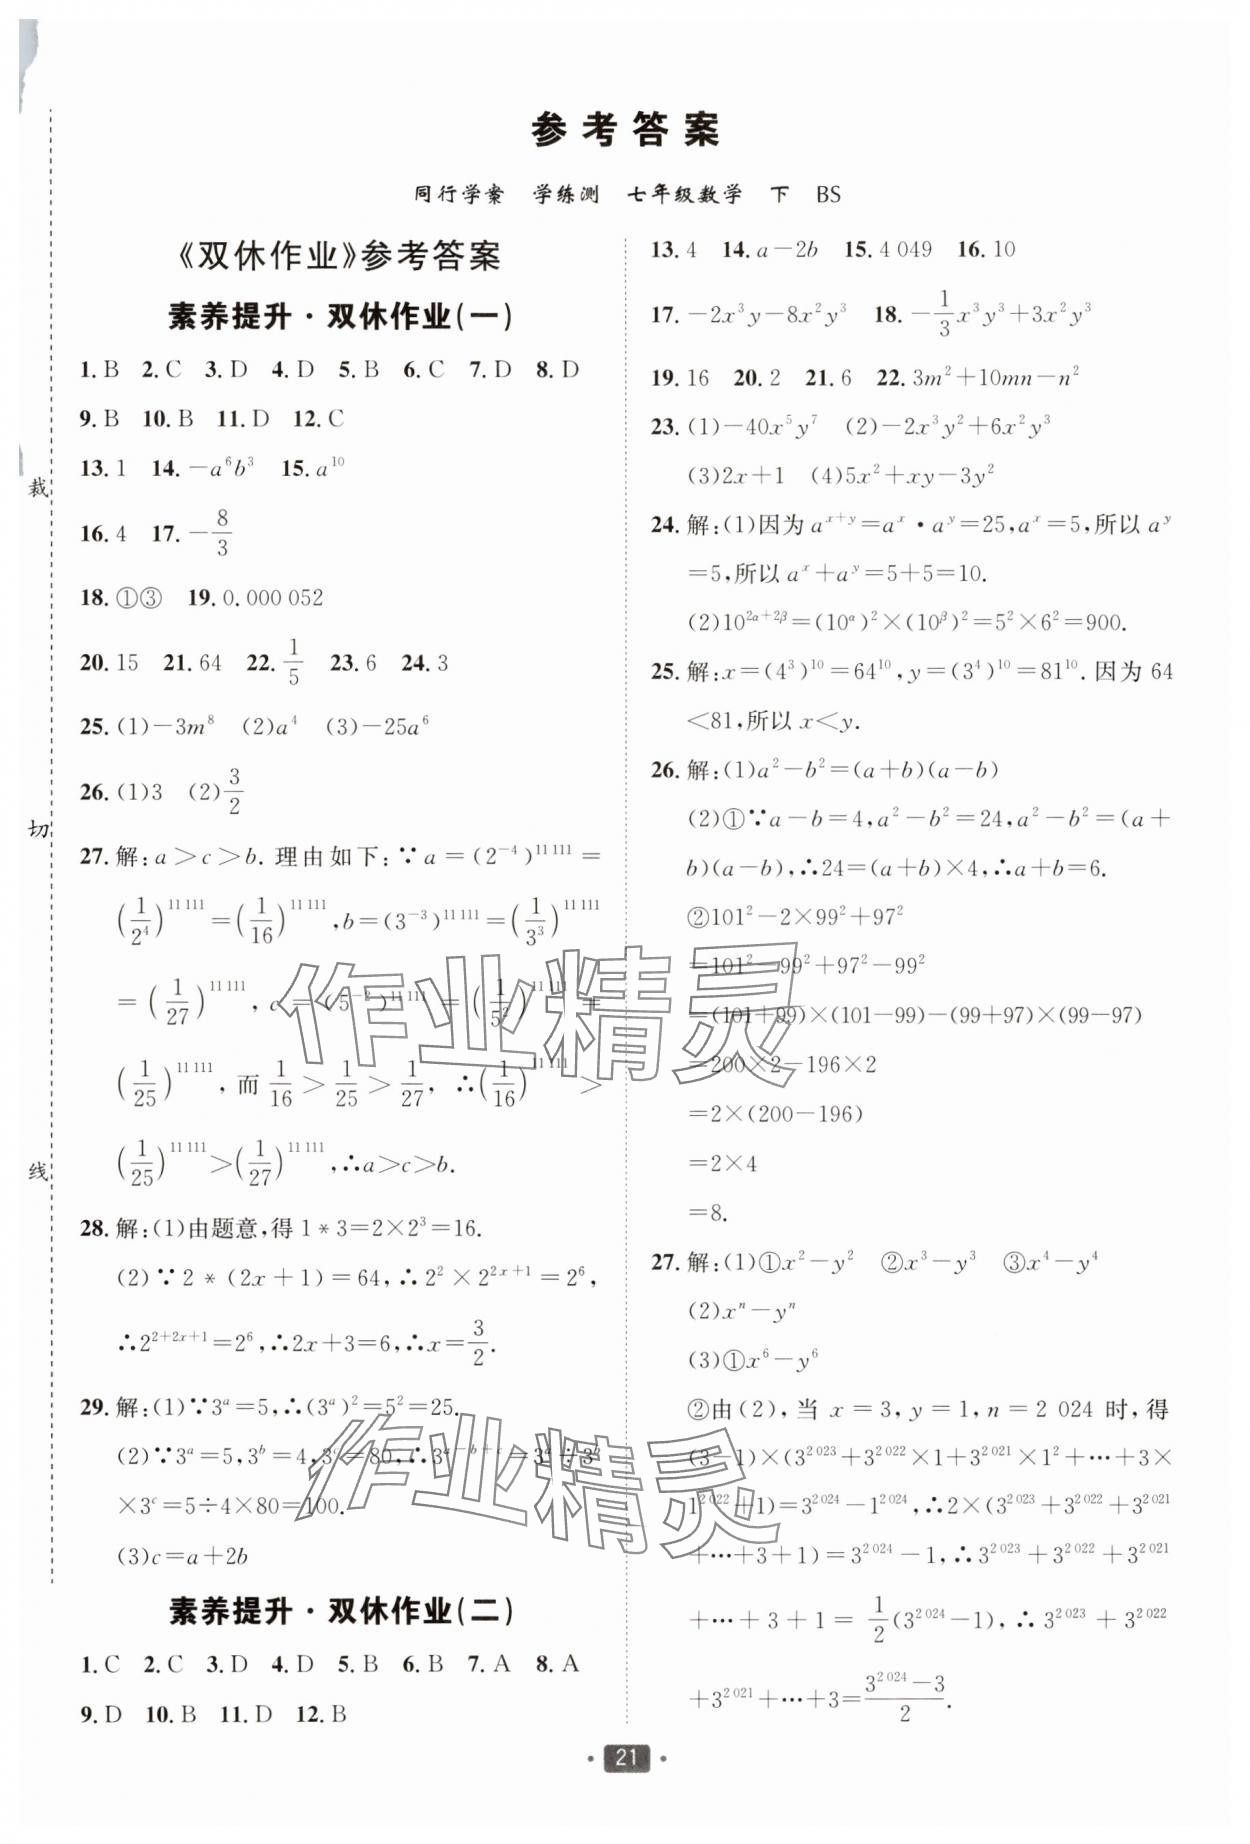 参考答案
同行学案 学练测 七年级数学 下 BS
《双休作业》参考答案
素养提升·双休作业(一)
1. B 2. C 3. D 4. D 5. B 6. C 7. D 8. D
9. B 10. B 11. D 12. C
13. 1 14. −a⁶b³ 15. a¹⁰
16. 4 17. −8/3
18. ①③ 19. 0.000 052
20. 15 21. 64 22. 1/5 23. 6 24. 3
25. (1)−3m⁸ (2)a⁴ (3)−25a⁶
26. (1)3 (2)3/2
27. 解:a>c>b. 理由如下:∵a=(2⁻⁴)^(11 111)=
(1/2⁴)^(11 111)=(1/16)^(11 111),b=(3⁻³)^(11 111)=(1/3³)^(11 111)
=(1/27)^(11 111),c=(5⁻²)^(11 111)=(1/5²)^(11 111)=
(1/25)^(11 111),而1/16>1/25>1/27,∴(1/16)^(11 111)>
(1/25)^(11 111)>(1/27)^(11 111),∴a>c>b.
28. 解:(1)由题意,得1*3=2×2³=16.
(2)∵2*(2x+1)=64,∴2²×2^(2x+1)=2⁶,
∴2^(2+2x+1)=2⁶,∴2x+3=6,∴x=3/2.
29. 解:(1)∵3^a=5,∴(3^a)²=5²=25.
(2)∵3^a=5,3^b=4,3^c=80,∴3^(a−b+c)=3^a÷3^b
×3^c=5÷4×80=100.
(3)c=a+2b
素养提升·双休作业(二)
1. C 2. C 3. D 4. D 5. B 6. B 7. A 8. A
9. D 10. B 11. D 12. B
13. 4 14. a−2b 15. 4 049 16. 10
17. −2x³y−8x²y³ 18. −1/3x³y³+3x²y³
19. 16 20. 2 21. 6 22. 3m²+10mn−n²
23. (1)−40x⁵y⁷ (2)−2x³y²+6x²y³
(3)2x+1 (4)5x²+xy−3y²
24. 解:(1)因为a^(x+y)=a^x·a^y=25,a^x=5,所以a^y
=5,所以a^x+a^y=5+5=10.
(2)10^(2α+2β)=(10^α)²×(10^β)²=5²×6²=900.
25. 解:x=(4³)¹⁰=64¹⁰,y=(3⁴)¹⁰=81¹⁰. 因为64
<81,所以x<y.
26. 解:(1)a²−b²=(a+b)(a−b)
(2)①∵a−b=4,a²−b²=24,a²−b²=(a+
b)(a−b),∴24=(a+b)×4,∴a+b=6.
②101²−2×99²+97²
=101²−99²+97²−99²
=(101+99)×(101−99)−(99+97)×(99−97)
=200×2−196×2
=2×(200−196)
=2×4
=8.
27. 解:(1)①x²−y² ②x³−y³ ③x⁴−y⁴
(2)xⁿ−yⁿ
(3)①x⁶−y⁶
②由(2),当x=3,y=1,n=2 024时,得
(3−1)×(3^(2 023)+3^(2 022)×1+3^(2 021)×1²+⋯+3×
1^(2 022)+1)=3^(2 024)−1^(2 024),∴2×(3^(2 023)+3^(2 022)+3^(2 021)
+⋯+3+1)=3^(2 024)−1,∴3^(2 023)+3^(2 022)+3^(2 021)
+⋯+3+1=1/2(3^(2 024)−1),∴3^(2 023)+3^(2 022)
+3^(2 021)+⋯+3=(3^(2 024)−3)/2.
裁
切
线
作业精灵
作业精灵
· 21 ·